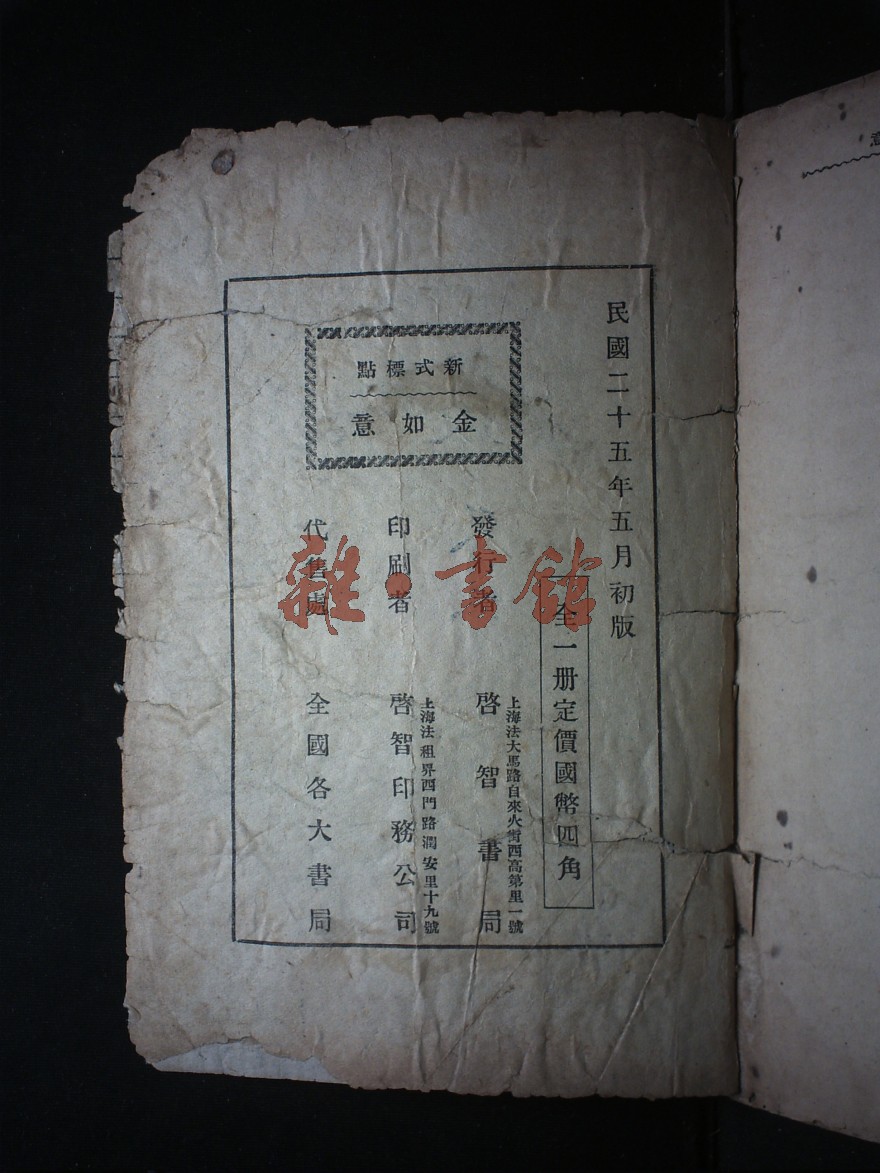 民國二十五年五月初版
全一册定價國幣四角
新式標點
金如意
發行者
上海法大馬路自來火街西高第里一號
啓智書局
印刷者
上海法租界西門路潤安里十九號
啓智印務公司
代售處
全國各大書局
雜·書館
意